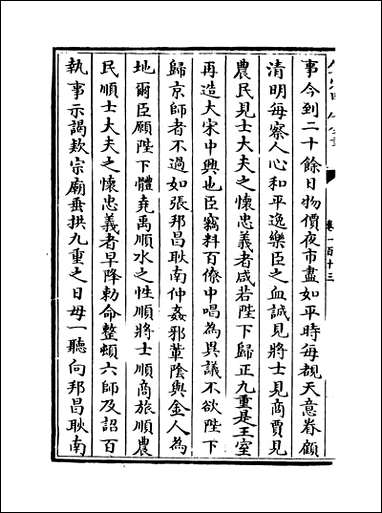 卷一百十三
事今到二十餘日物價夜市盡如平時每覩天意眷顧
清明每察人心和平逸樂臣之血誠見將士見商賈見
農民見士大夫之懷忠義者咸若陛下歸正九重是王室
再造大宋中興也臣竊料百僚中唱為異議不欲陛下
歸京師者不過如張邦昌耿南仲姦邪軰陰與金人為
地爾臣願陛下體堯禹順水之性順將士順商旅順農
民順士大夫之懷忠義者早降勑命整頓六師及詔百
執事示謁欵宗廟垂拱九重之日毋一聽向邦昌耿南